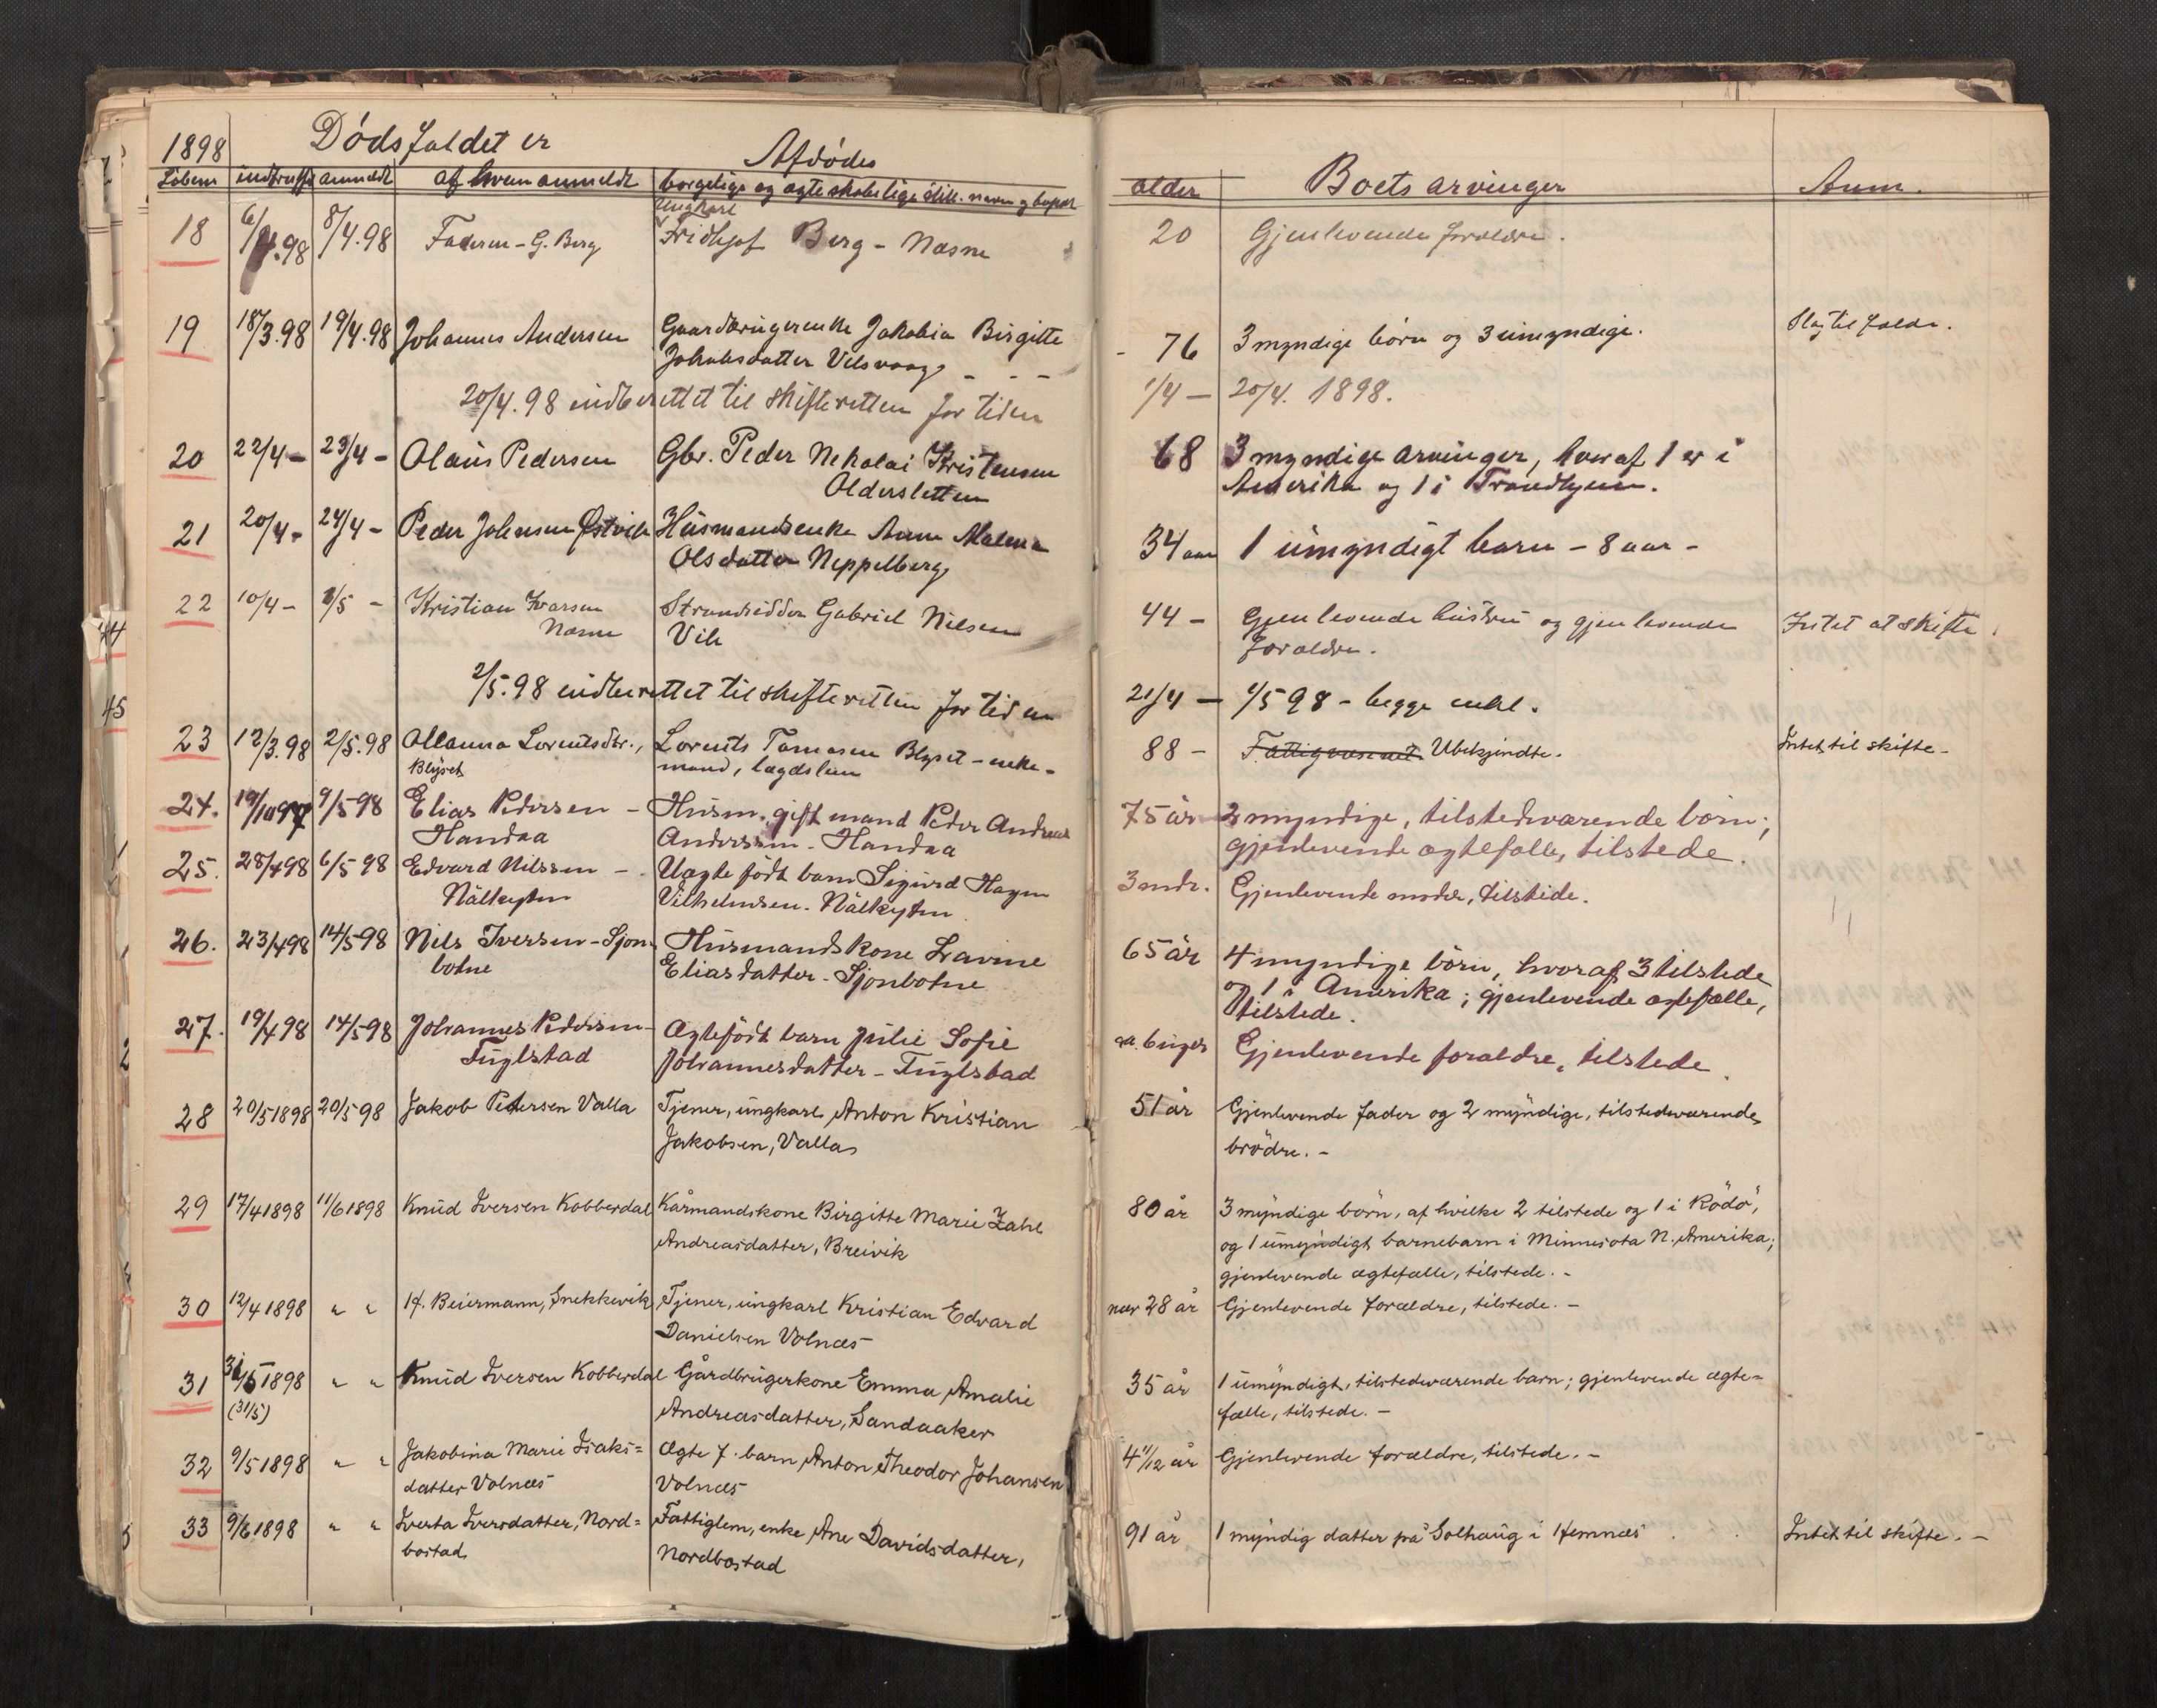 1898 Dödsfaldet er Afdödes
Löbenr indtruffet anmeldt af hvem anmeldt borgelige og ægteskabelige still. navn og bopæl alder Boets arvinger Anm.
Ungkarl
18 6/4.98 8/4.98 Faderen - G. Berg Fridthjof Berg - Næsne 20 Gjenlevende forældre.
19 18/3.98 19/4.98 Johannes Andersen Gaardbrugerenke Jakobia Birgitte 76 3 myndige börn og 3 umyndige.
Jakobsdatter Vilsvaag - - -
20/4.98 indberettet til skifteretten for tiden 1/4 - 20/4. 1898.
20 22/4 - 23/4 - Olaus Pedersen Gbr. Peder Nekolai Kristensen 68 3 myndige arvinger, hvoraf 1 er i
Olderslетten Amerika og 1 i Trondhjem.
21 20/4 - 24/4 - Peder Johansen Østvik Husmandsenke Anne Malena 34 aar 1 umyndigt barn - 8 aar -
Olsdatter Neppelberg
22 10/4 - 1/5 - Kristian Ivarsen Strandsidder Gabriel Nilsen 44 - Gjenlevende hustru og gjenlevende Intet at skifte.
Næsne Vik forældre.
2/5.98 indberettet til skifteretten for tiden 21/4 - 1/5 98 - begge inkl.
23 12/3.98 2/5.98 Ollanna Lorentsdtr., Lorents Tomasen Blyset - enke- 88 - Fattigvæsenet Ubekjendte. Intet til skifte -
Blyset mand, lægdslem
24. 19/10 97 9/5 98 Elias Pedersen - Husm. gift mand Peder Andreas 75 år 2 myndige, tilstedeværende börn;
Handaa Anderssen - Handaa gjenlevende ægtefælle, tilstede.
25. 28/4 98 6/5 98 Edvard Nilssen - Uægte födt barn Sigurd Hagen 3 mdr. Gjenlevende moder, tilstede.
Nålkeyten Vilhelmsen - Nålkeyten
26. 23/4 98 14/5 98 Nils Iversen - Sjon- Husmandskone Lavine 65 år 4 myndige börn, hvoraf 3 tilstede
botne Eliasdatter - Sjonbotne og 1 i Amerika; gjenlevende ægtefælle,
tilstede.
27. 19/4 98 14/5 98 Johannes Pedersen - Ægtefödt barn Julie Sofie ca. 6 uger Gjenlevende forældre, tilstede.
Fuglstad Johannesdatter - Fuglstad
28 20/5 1898 20/5 98 Jakob Petersen Valla Tjener, ungkarl Anton Kristian 51 år Gjenlevende fader og 2 myndige, tilstedeværende
Jakobsen, Valla brödre. -
29 17/4 1898 11/6 1898 Knud Iversen Kobberdal Kårmandskone Birgitte Marie Zahl 80 år 3 myndige börn, af hvilke 2 tilstede og 1 i Rödö,
Andreasdatter, Breivik og 1 umyndigt barnebarn i Minnesota N. Amerika;
gjenlevende ægtefælle, tilstede. -
30 12/4 1898 " " H. Beiermann, Snekkevik Tjener, ungkarl Kristian Edvard nær 28 år Gjenlevende forældre, tilstede. -
Danielsen Volnæs
31 31/5 1898 " " Knud Iversen Kobberdal Gårdbrugerkone Emma Amalie 35 år 1 umyndigt, tilstedeværende barn; gjenlevende ægte=
(31/5) Andreasdatter, Sandaaker fælle, tilstede. -
32 9/5 1898 " " Jakobina Marie Isaks= Ægte f. barn Anton Theodor Johansen 4 11/12 år Gjenlevende forældre, tilstede. -
datter Volnæs Volnæs
33 9/6 1898 " " Iverta Iversdatter, Nord= Fattiglem, enke Ane Davidsdatter, 91 år 1 myndig datter på Solhaug i Hemnæs Intet til skifte. -
bostad Nordbostad